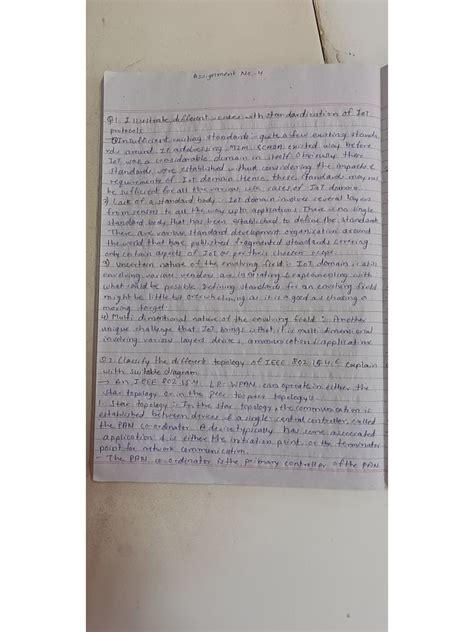 Assignment No.-4
Q1. Illustrate different issues with standardization of IoT
protocols.
1) Insufficient existing standards :- quite a few existing standa
rds around IoT addressing, M2M, SCADA existed way before
IoT was a considerable domain in itself. Obviously these
standards were established without considering the impacts &
requirements of IoT domain. Hence, these standards may not
be sufficient for all the various use cases of IoT domain.
2) Lack of a standard body :- IoT domain involves several layers
from sensors to all the way upto applications. There is no single
standard body that has been established to define the standards
There are various standard development organization around
the world that have published fragmented standards covering
only certain aspects of IoT or per their chosen scope.
3) Uncertain nature of the evolving field :- IoT domain is still
evolving various vendors are experimenting with
what could be possible. Defining standards for an evolving field
might be little bit overwhelming as it is as good as chasing a
moving target.
4) Multi dimentional nature of the evolving field :- Another
unique challenge that IoT brings is that it is multi dimensional
involving various layers device, communication & application
Q2. Classify the different topology of IEEE 802.15.4 & explain
with suitable diagram.
→ An IEEE 802.15.4 LR-WPAN can operate in either the
star topology or in the peer to peer topology :-
1. Star topology :- In the star topology, the communication is
established between devices & a single central controller, called
the PAN co-ordinator. A device typically has some associated
application & is either the initiation point or the terminator
point for network communication.
- The PAN co-ordinator is the primary controller of the PAN